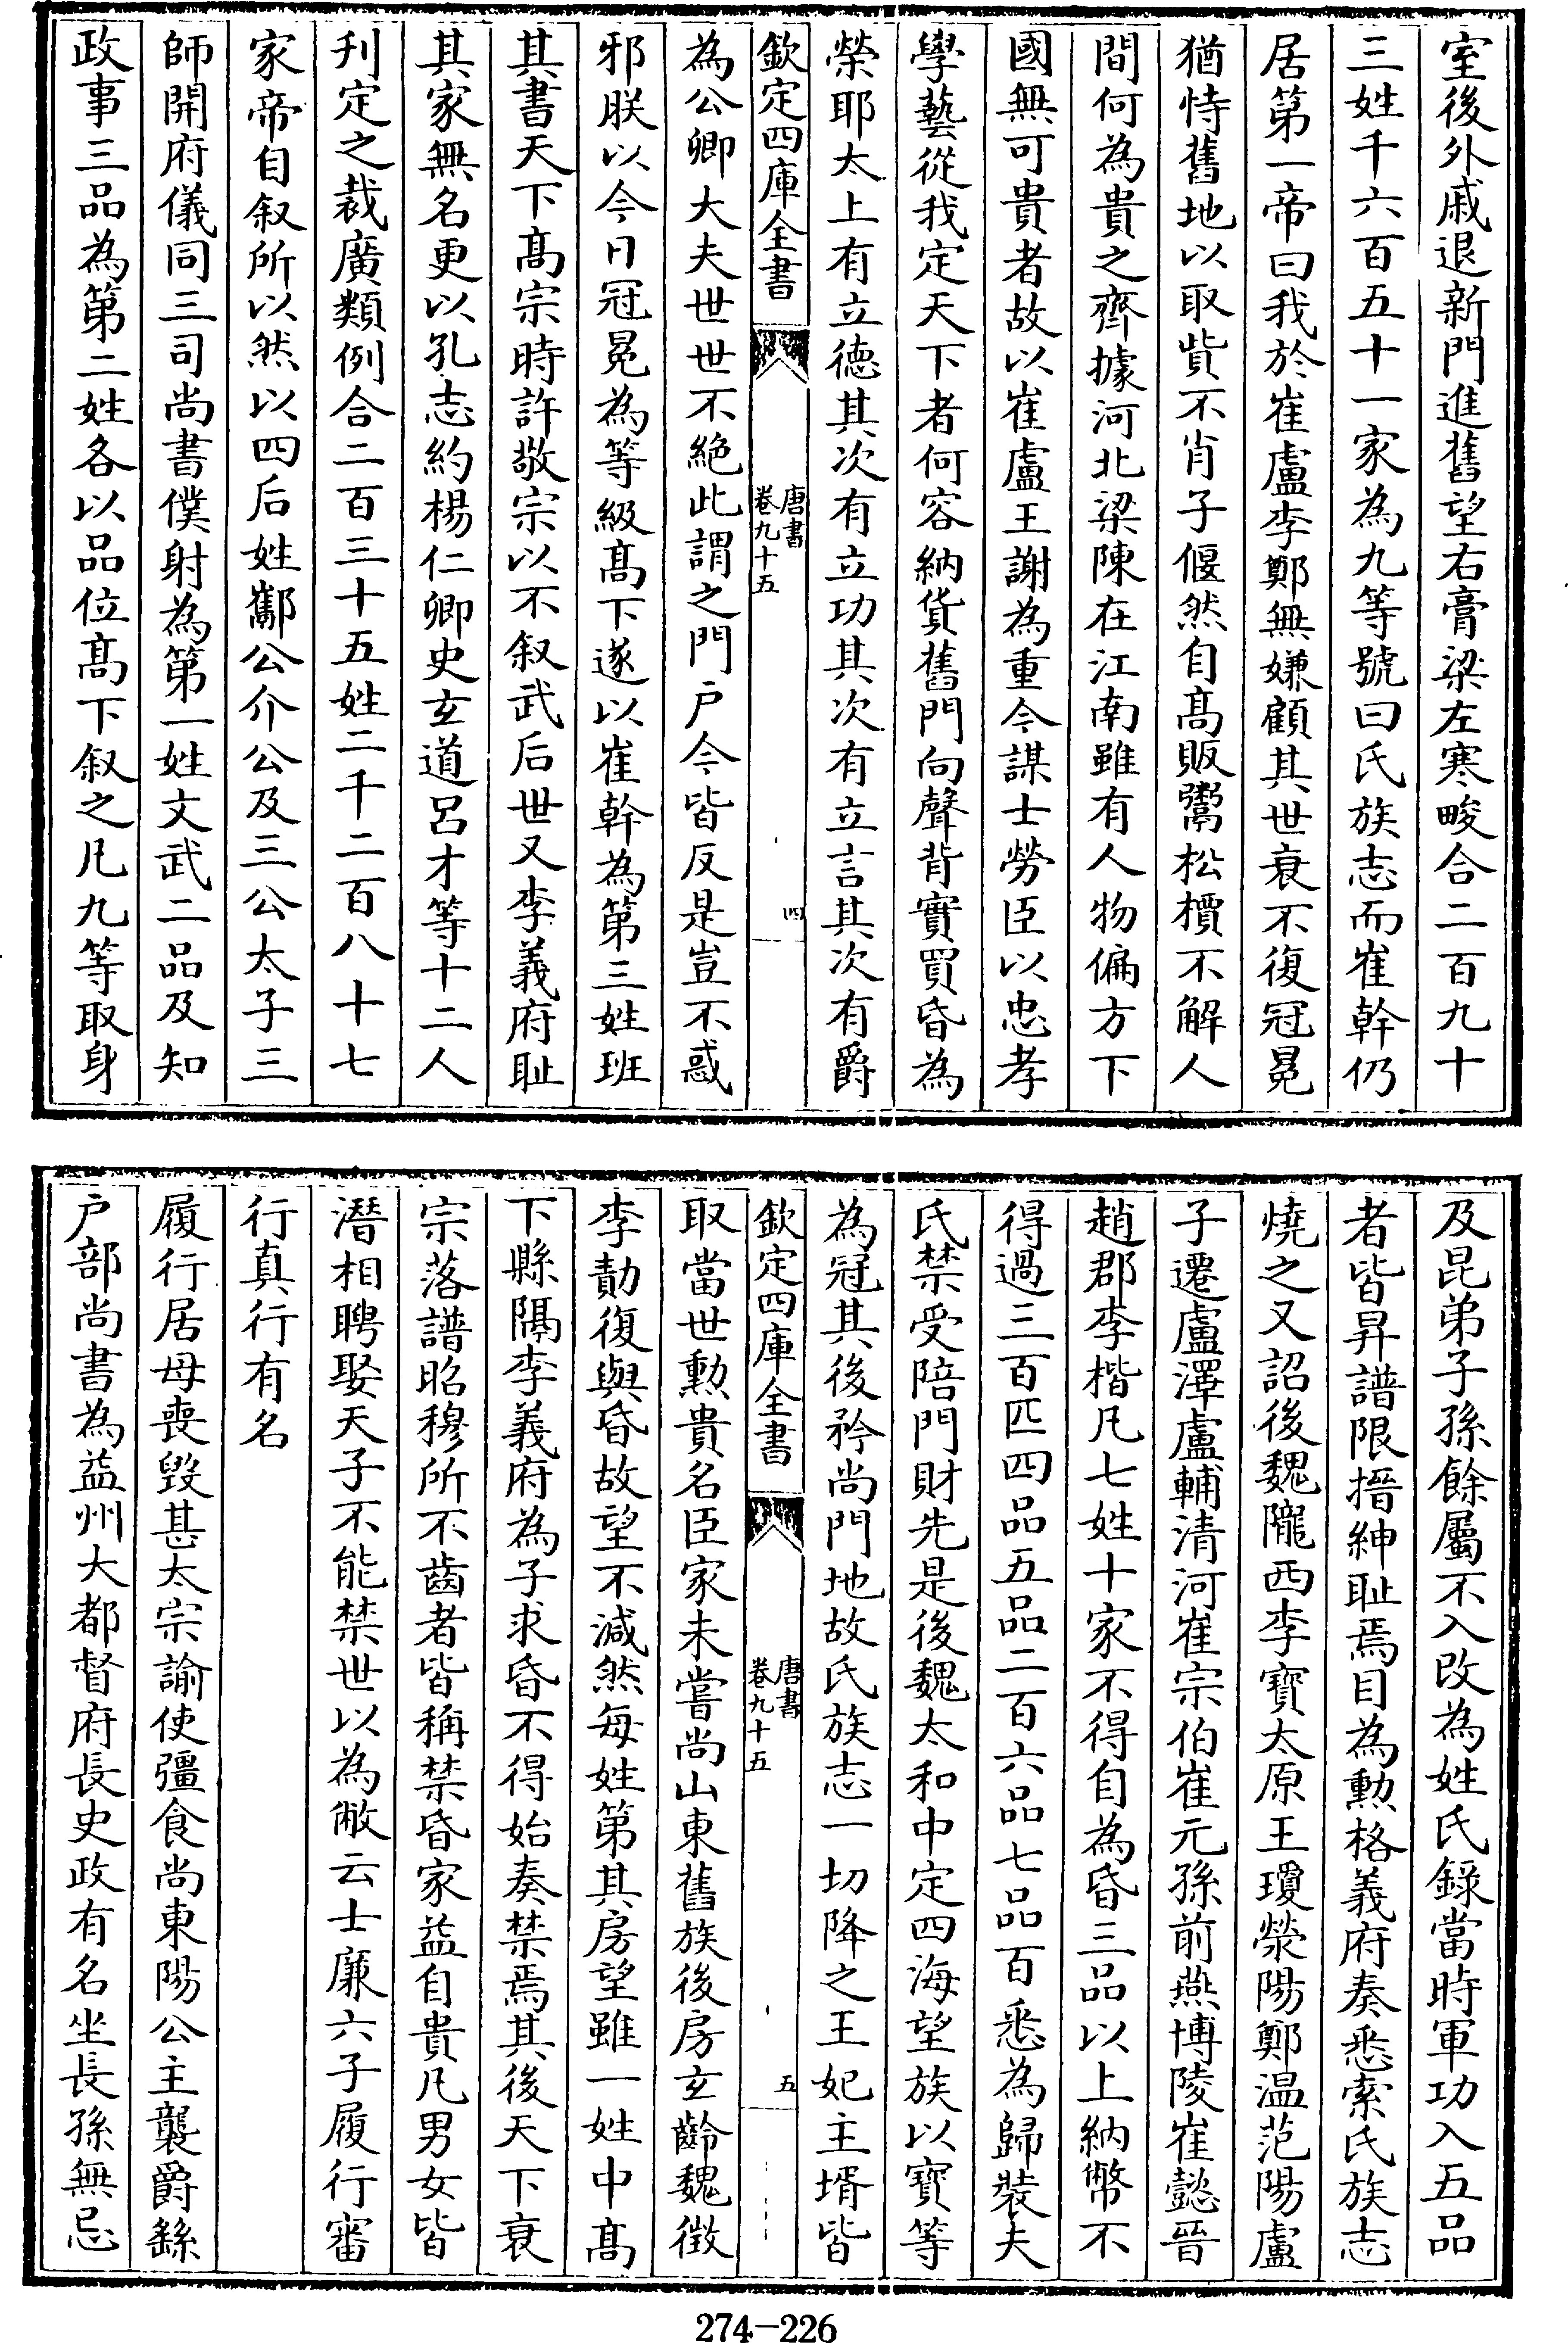 室後外戚退新門進舊望右膏梁左寒畯合二百九十
三姓千六百五十一家為九等號曰氏族志而崔幹仍
居第一帝曰我於崔盧李鄭無嫌顧其世衰不復冠冕
猶恃舊地以取貲不肖子偃然自髙販鬻松檟不解人
間何為貴之齊據河北梁陳在江南雖有人物偏方下
國無可貴者故以崔盧王謝為重今謀士勞臣以忠孝
學藝從我定天下者何容納貨舊門向聲背實買昏為
榮耶太上有立德其次有立功其次有立言其次有爵
欽定四庫全書
唐書
卷九十五
四
為公卿大夫世世不絶此謂之門户今皆反是豈不惑
邪朕以今日冠冕為等級髙下遂以崔幹為第三姓班
其書天下髙宗時許敬宗以不叙武后世又李義府耻
其家無名更以孔志約楊仁卿史玄道呂才等十二人
刋定之裁廣類例合二百三十五姓二千二百八十七
家帝自叙所以然以四后姓酅公介公及三公太子三
師開府儀同三司尚書僕射為第一姓文武二品及知
政事三品為第二姓各以品位髙下叙之凡九等取身
及昆弟子孫餘屬不入改為姓氏錄當時軍功入五品
者皆昇譜限搢紳耻焉目為勲格義府奏悉索氏族志
燒之又詔後魏隴西李寶太原王瓊滎陽鄭温范陽盧
子遷盧澤盧輔清河崔宗伯崔元孫前燕博陵崔懿晉
趙郡李楷凡七姓十家不得自為昏三品以上納幣不
得過三百匹四品五品二百六品七品百悉為歸裝夫
氏禁受陪門財先是後魏太和中定四海望族以寶等
為冠其後矜尚門地故氏族志一切降之王妃主壻皆
欽定四庫全書
唐書
卷九十五
五
取當世勲貴名臣家未嘗尚山東舊族後房玄齡魏徴
李勣復與昏故望不減然每姓第其房望雖一姓中髙
下縣隔李義府為子求昏不得始奏禁焉其後天下衰
宗落譜昭穆所不齒者皆稱禁昏家益自貴凡男女皆
潛相聘娶天子不能禁世以為敝云士廉六子履行審
行真行有名
履行居母喪毀甚太宗諭使彊食尚東陽公主襲爵繇
户部尚書為益州大都督府長史政有名坐長孫無忌
274-226